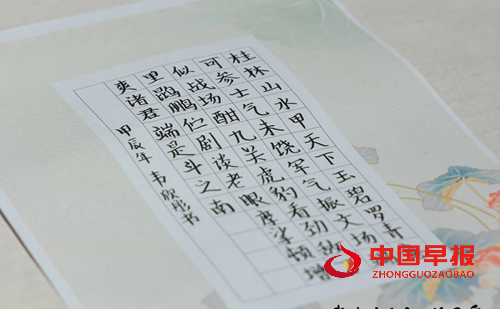 桂林山水甲天下玉碧罗青
可参士气未饶军气振文场
似战场酣九关虎豹看劲敌
里鹍鹏伫剧谈老眼摩挲顿增
爽诸君端是斗之南
甲辰年 韦欣彤书
中国早报
ZHONGGUOZAOBAO